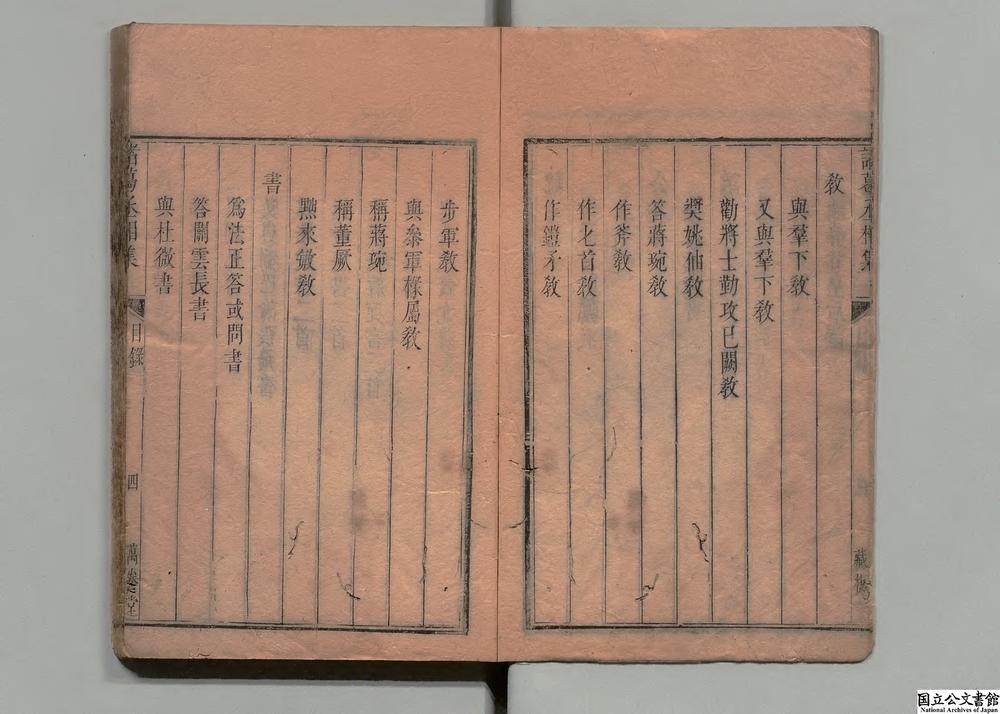 教
與羣下教
又與羣下教
勸將士勤攻已闕教
奬姚伷教
答蔣琬教
作斧教
作匕首教
作鎧矛教
步軍教
與參軍椽屬教
稱蔣琬
稱董厥
黜來敏教
書
爲法正答或問書
答關雲長書
與杜微書
諸葛丞相集
目錄
四
萬卷堂
国立公文書館
National Archives of Japan